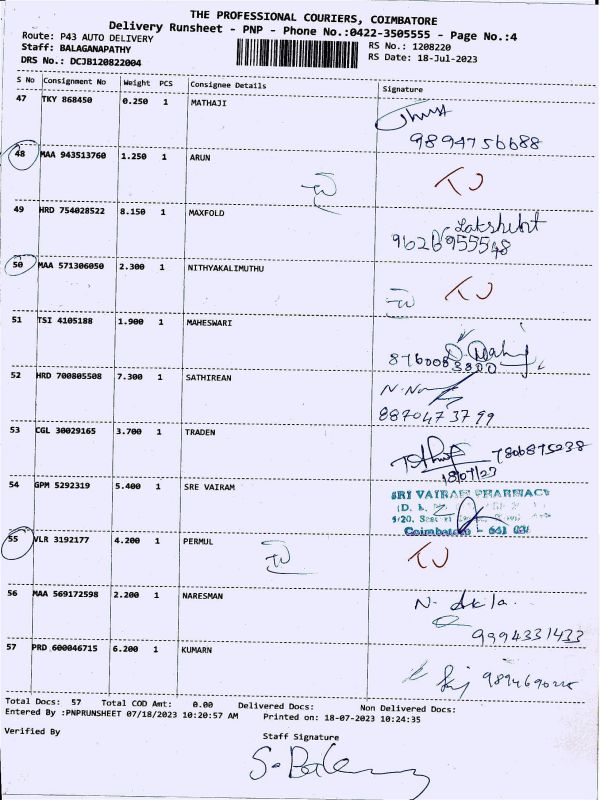 THE PROFESSIONAL COURIERS, COIMBATORE
Delivery Runsheet - PNP - Phone No.:0422-3505555 - Page No.:4
Route: P43 AUTO DELIVERY
Staff: BALAGANAPATHY
DRS No.: DCJB120822004
RS No.: 1208220
RS Date: 18-Jul-2023
S No Consignment No Weight PCS Consignee Details Signature
47 TKY 868450 0.250 1 MATHAJI
9894756688
48 MAA 943513760 1.250 1 ARUN TJ
49 HRD 754028522 8.150 1 MAXFOLD
50 MAA 571306050 2.300 1 NITHYAKALIMUTHU TJ
51 TSI 4105188 1.900 1 MAHESWARI
52 HRD 700805508 7.300 1 SATHIREAN
8870473799
53 CGL 30029165 3.700 1 TRADEN 7806875238
18/07/23
54 GPM 5292319 5.400 1 SRE VAIRAM SRI VAIRAM PHARMACY
Coimbatore - 641
55 VLR 3192177 4.200 1 PERMUL TJ
56 MAA 569172598 2.200 1 NARESMAN
9994331433
57 PRD 600046715 6.200 1 KUMARN
Total Docs: 57 Total COD Amt: 0.00 Delivered Docs: Non Delivered Docs:
Entered By :PNPRUNSHEET 07/18/2023 10:20:57 AM Printed on: 18-07-2023 10:24:35
Verified By Staff Signature